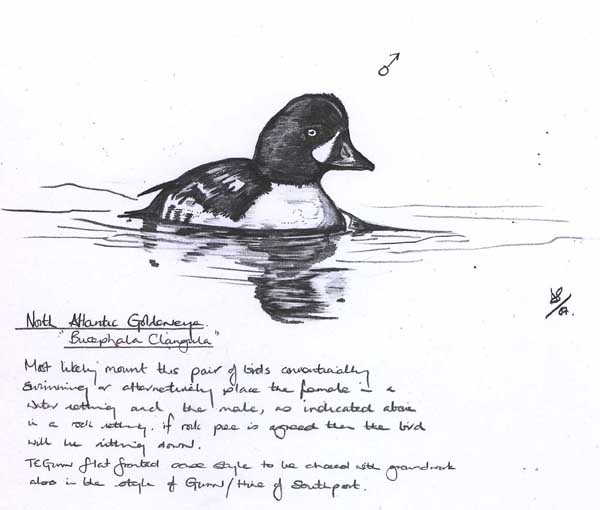 ♂
North Atlantic Goldeneye.
"Bucephala Clangula"
Most likely mount this pair of birds conventionally
swimming or alternatively place the female in a
water setting and the male, as indicated above
in a rock setting. if rock pee is agreed then the bird
will be sitting down.
TEGunn flat fronted case style to be chosed with groundwork
also in the style of Gunn/Hine of Southport.
07.